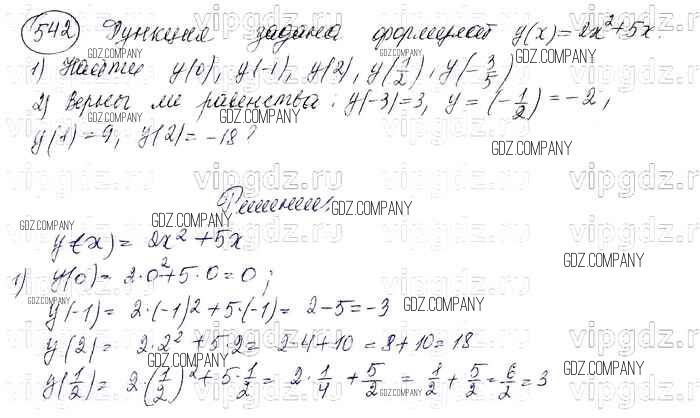 542 Функция задана формулой y(x)=2x²+5x.
1) Найти y(0), y(-1), y(2), y(1/2), y(-3/5)
2) Верны ли равенства: y(-3)=3, y=(-1/2)=-2,
y(1)=9, y(2)=-18?
Решение:
y(x)=2x²+5x
1) y(0)=2·0²+5·0=0;
y(-1)=2·(-1)²+5·(-1)=2-5=-3
y(2)=2·2²+5·2=2·4+10=8+10=18
y(1/2)=2·(1/2)²+5·1/2=2·1/4+5/2=1/2+5/2=6/2=3